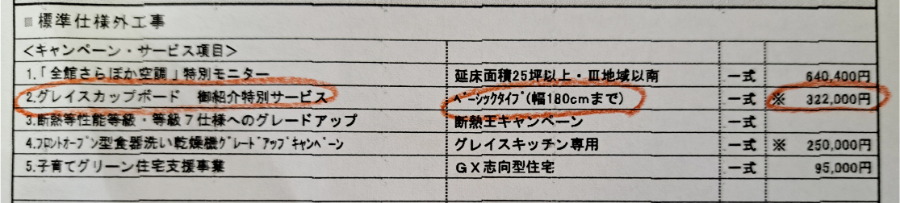 ■標準仕様外工事
<キャンペーン・サービス項目>
1.「全館さらぽか空調」特別モニター 延床面積25坪以上・Ⅲ地域以南 一式 640,400円
2.グレイスカップボード 御紹介特別サービス ﾍﾞｰｼｯｸﾀｲﾌﾟ(幅180cmまで) 一式 ※ 322,000円
3.断熱等性能等級・等級7仕様へのグレードアップ 断熱王キャンペーン 一式
4.ﾌﾛﾝﾄｵｰﾌﾟﾝ型食器洗い乾燥機ｸﾞﾚｰﾄﾞｱｯﾌﾟｷｬﾝﾍﾟｰﾝ グレイスキッチン専用 一式 ※ 250,000円
5.子育てグリーン住宅支援事業 GX志向型住宅 一式 95,000円